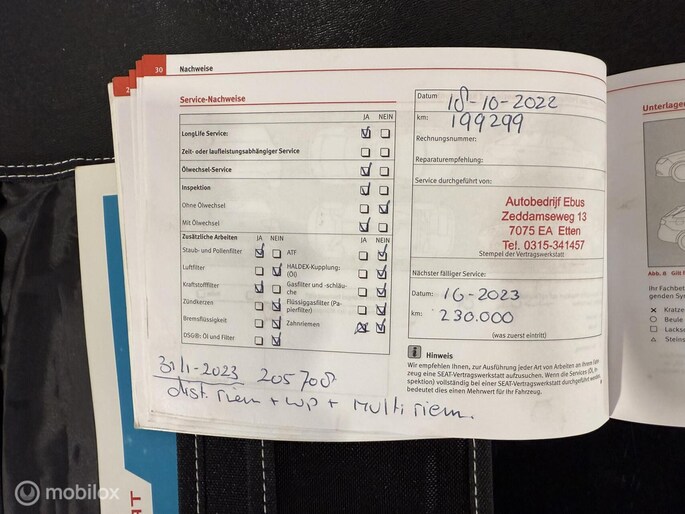 30 Nachweise
Service-Nachweise
JA NEIN
LongLife Service:
Zeit- oder laufleistungsabhängiger Service
Ölwechsel-Service
Inspektion
Ohne Ölwechsel
Mit Ölwechsel
Zusätzliche Arbeiten JA NEIN JA NEIN
Staub- und Pollenfilter
Luftfilter
Kraftstofffilter
Zündkerzen
Bremsflüssigkeit
DSG®: Öl und Filter
ATF
HALDEX-Kupplung:
(Öl)
Gasfilter und -schläu-
che
Flüssiggasfilter (Pa-
pierfilter)
Zahnriemen
31/1-2023 205708
dist. riem + WP + Multi riem.
Datum: 18-10-2022
km: 199299
Rechnungsnummer:
Reparaturempfehlung:
Service durchgeführt von:
Autobedrijf Ebus
Zeddamseweg 13
7075 EA Etten
Tel. 0315-341457
Stempel der Vertragswerkstatt
Nächster fälliger Service:
Datum: 10-2023
km: 230.000
(was zuerst eintritt)
i Hinweis
Wir empfehlen Ihnen, zur Ausführung jeder Art von Arbeiten an Ihrem Fahr-
zeug eine SEAT-Vertragswerkstatt aufzusuchen. Wenn die Services (Öl, In-
spektion) vollständig bei einer SEAT-Vertragswerkstatt durchgeführt werden,
bedeutet dies einen Mehrwert für Ihr Fahrzeug.
Unterlagen
Abb. 8
Ihr Fachbet
genden Sym
Kratze
Beule
Lackse
Steins
mobilox